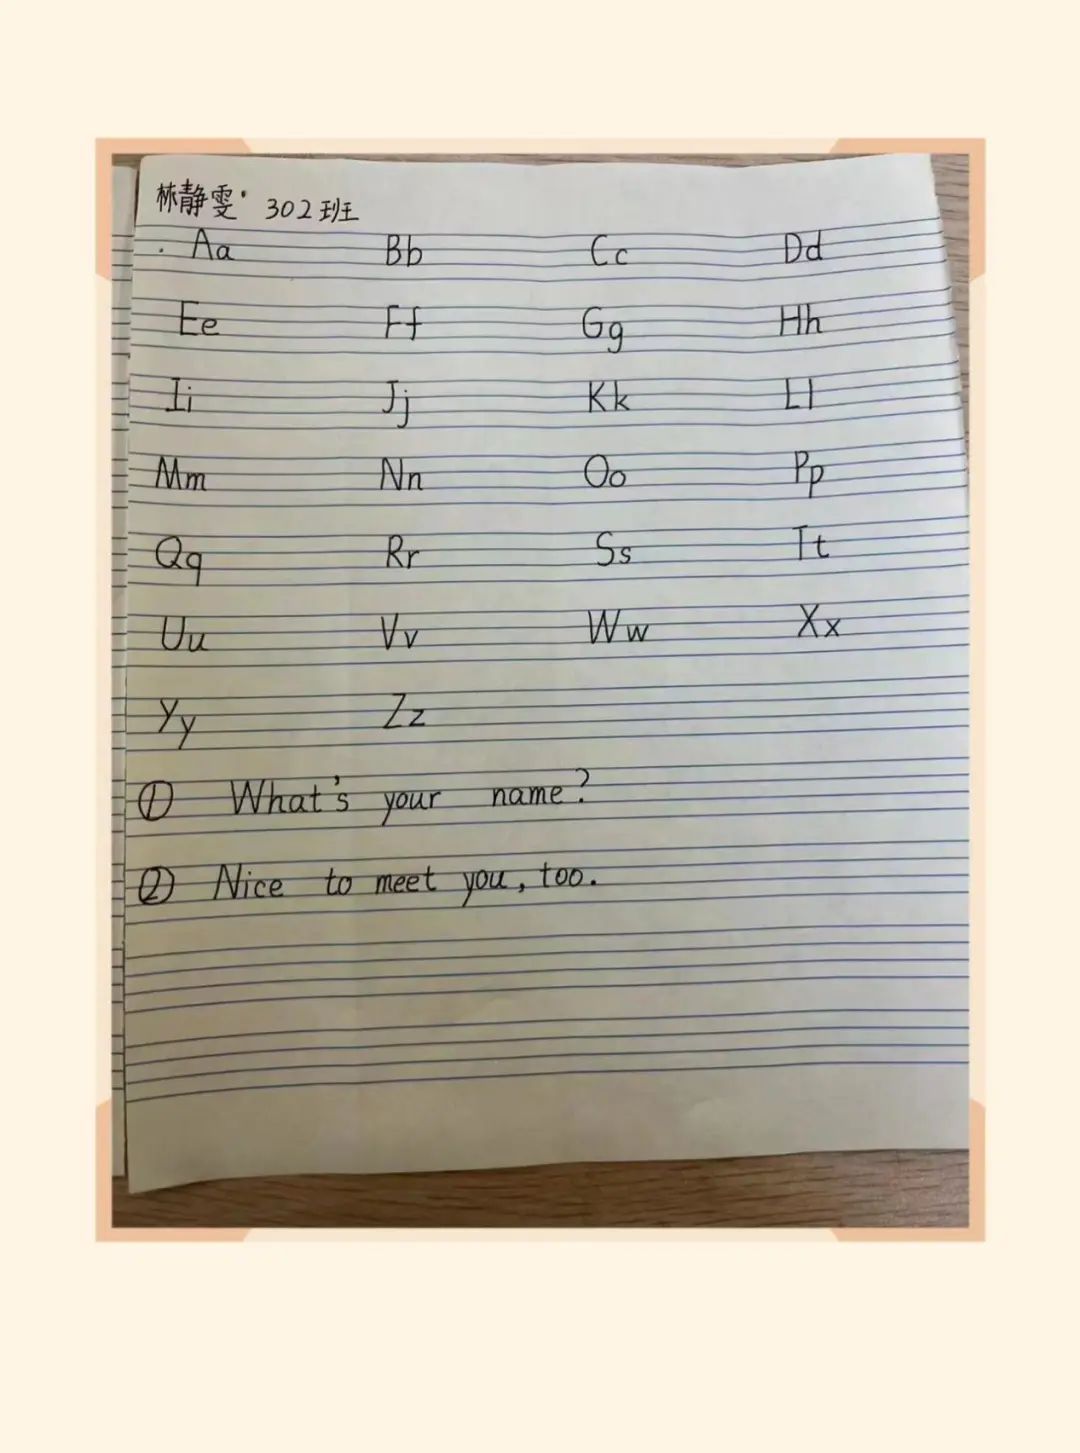 林静雯 302班
Aa Bb Cc Dd
Ee Ff Gg Hh
Ii Jj Kk Ll
Mm Nn Oo Pp
Qq Rr Ss Tt
Uu Vv Ww Xx
Yy Zz
① What's your name?
② Nice to meet you, too.